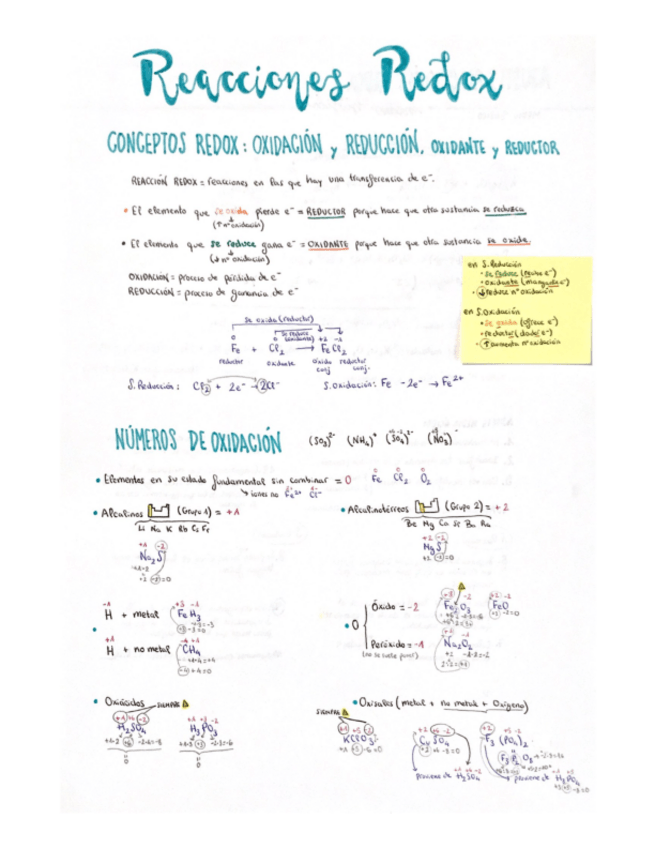 Reacciones Redox
CONCEPTOS REDOX: OXIDACIÓN y REDUCCIÓN, OXIDANTE y REDUCTOR
REACCIÓN REDOX = reacciones en las que hay una transferencia de e⁻.
• El elemento que se oxida pierde e⁻ = REDUCTOR porque hace que otra sustancia se reduzca
(↑ nº oxidación)
• El elemento que se reduce gana e⁻ = OXIDANTE porque hace que otra sustancia se oxide.
(↓ nº oxidación)
OXIDACIÓN = proceso de pérdida de e⁻
REDUCCIÓN = proceso de ganancia de e⁻
en S. Reducción
• se reduce
• oxidante
• ↓ reduce nº oxidación
en S. Oxidación
• se oxida (ofrece e⁻)
• reductor
• ↑ aumenta nº oxidación
se oxida (reductor)
se reduce (oxidante)
0 0 +2 -1
Fe + Cl₂ → FeCl₂
reductor oxidante óxido conj. reductor conj.
S. Reducción: Cl₂ + 2e⁻ → 2Cl⁻
S. Oxidación: Fe - 2e⁻ → Fe²⁺
NÚMEROS DE OXIDACIÓN (SO₃)²⁻ (NH₄)⁺ (SO₄)²⁻ (NO₃)⁻
• Elementos en su estado fundamental sin combinar = 0 Fe Cl₂ O₂
↳ iones no Fe²⁺ Cl⁻
• Alcalinos (Grupo 1) = +1
Li Na K Rb Cs Fr
+1 -2
Na₂S
• Alcalinotérreos (Grupo 2) = +2
Be Mg Ca Sr Ba Ra
+2 -2
MgS
-1
H + metal
+3 -1
FeH₃
+1
H + no metal
CH₄
• O
Óxido = -2
+3 -2
Fe₂O₃
+2 -2
FeO
Peróxido = -1
Na₂O₂
• Oxiácidos SIEMPRE
+1 +6 -2
H₂SO₄
H₃PO₄
• Oxisales (metal + no metal + Oxígeno)
SIEMPRE
+1 +5 -2
KClO₃
+2 +6 -2
CuSO₄
proviene de H₂SO₄
+2 +5 -2
F₃(PO₄)₂
proviene de H₃PO₄